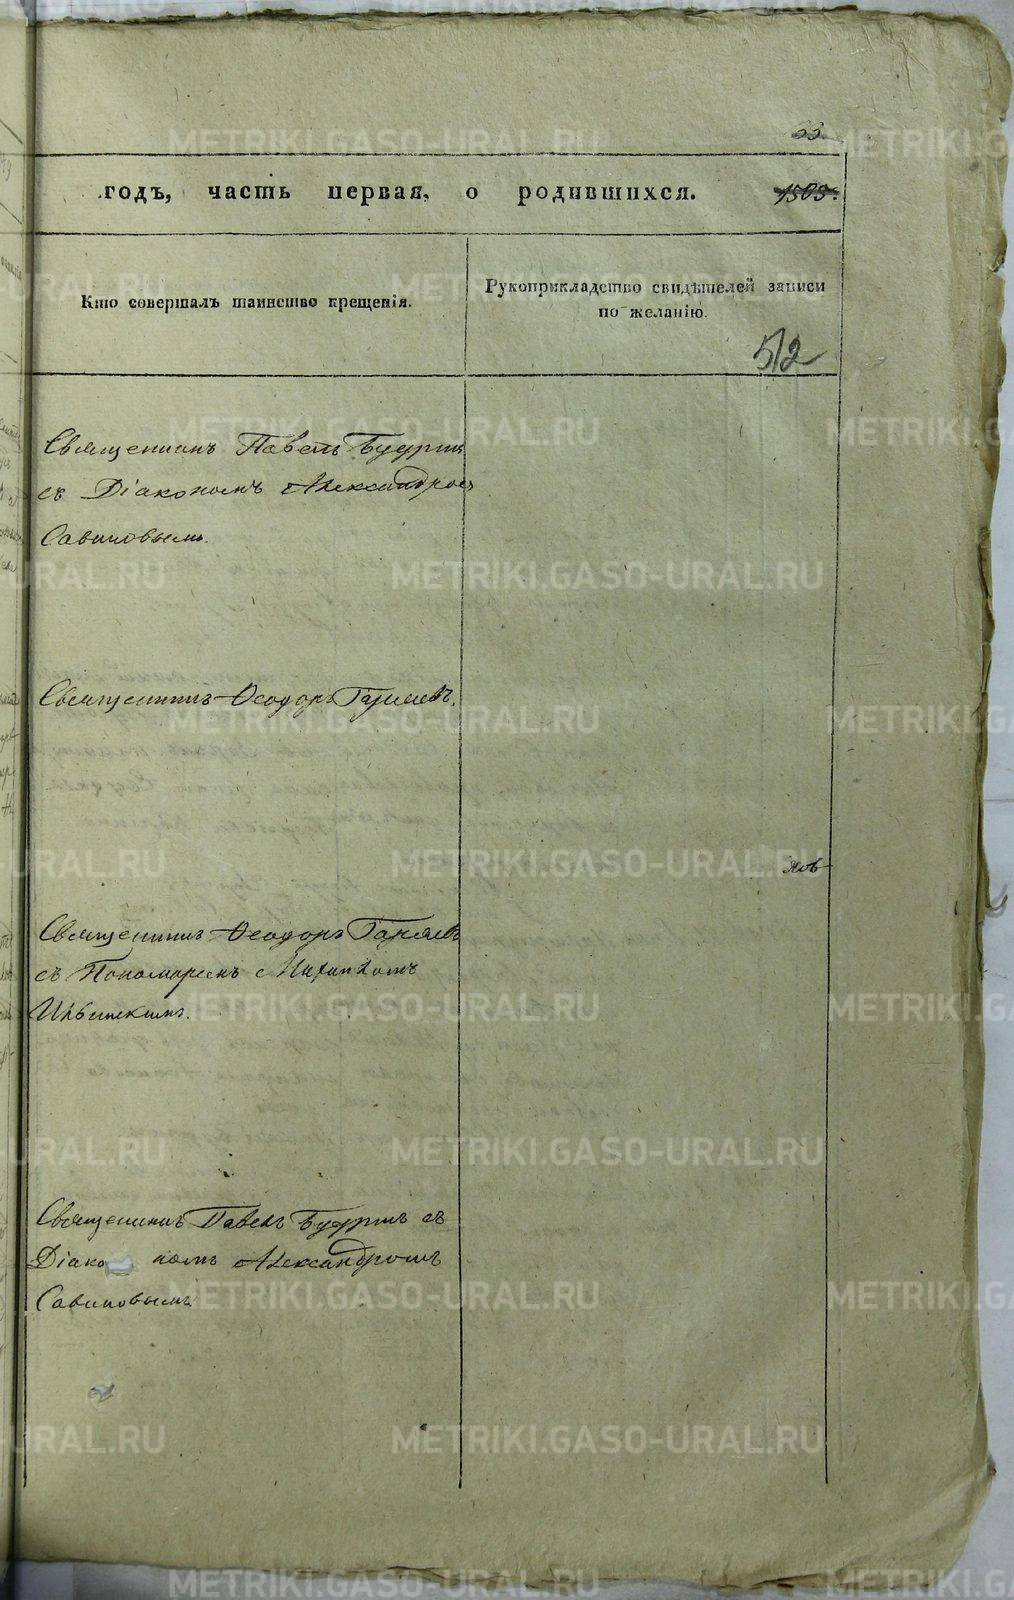 33.
годъ, часть первая, о родившихся. 1505.
Кто совершалъ таинство крещенія.
Рукоприкладство свидѣтелей записи
по желанію.
512
Священникъ Павелъ Будринъ
съ Діакономъ Александромъ
Савиновымъ.
Священникъ Ѳеодоръ Гаряевъ.
Священникъ Ѳеодоръ Гаряевъ
съ Пономаремъ
Священникъ Павелъ Будринъ съ
Діакономъ Александромъ
Савиновымъ
METRIKI.GASO-URAL.RU